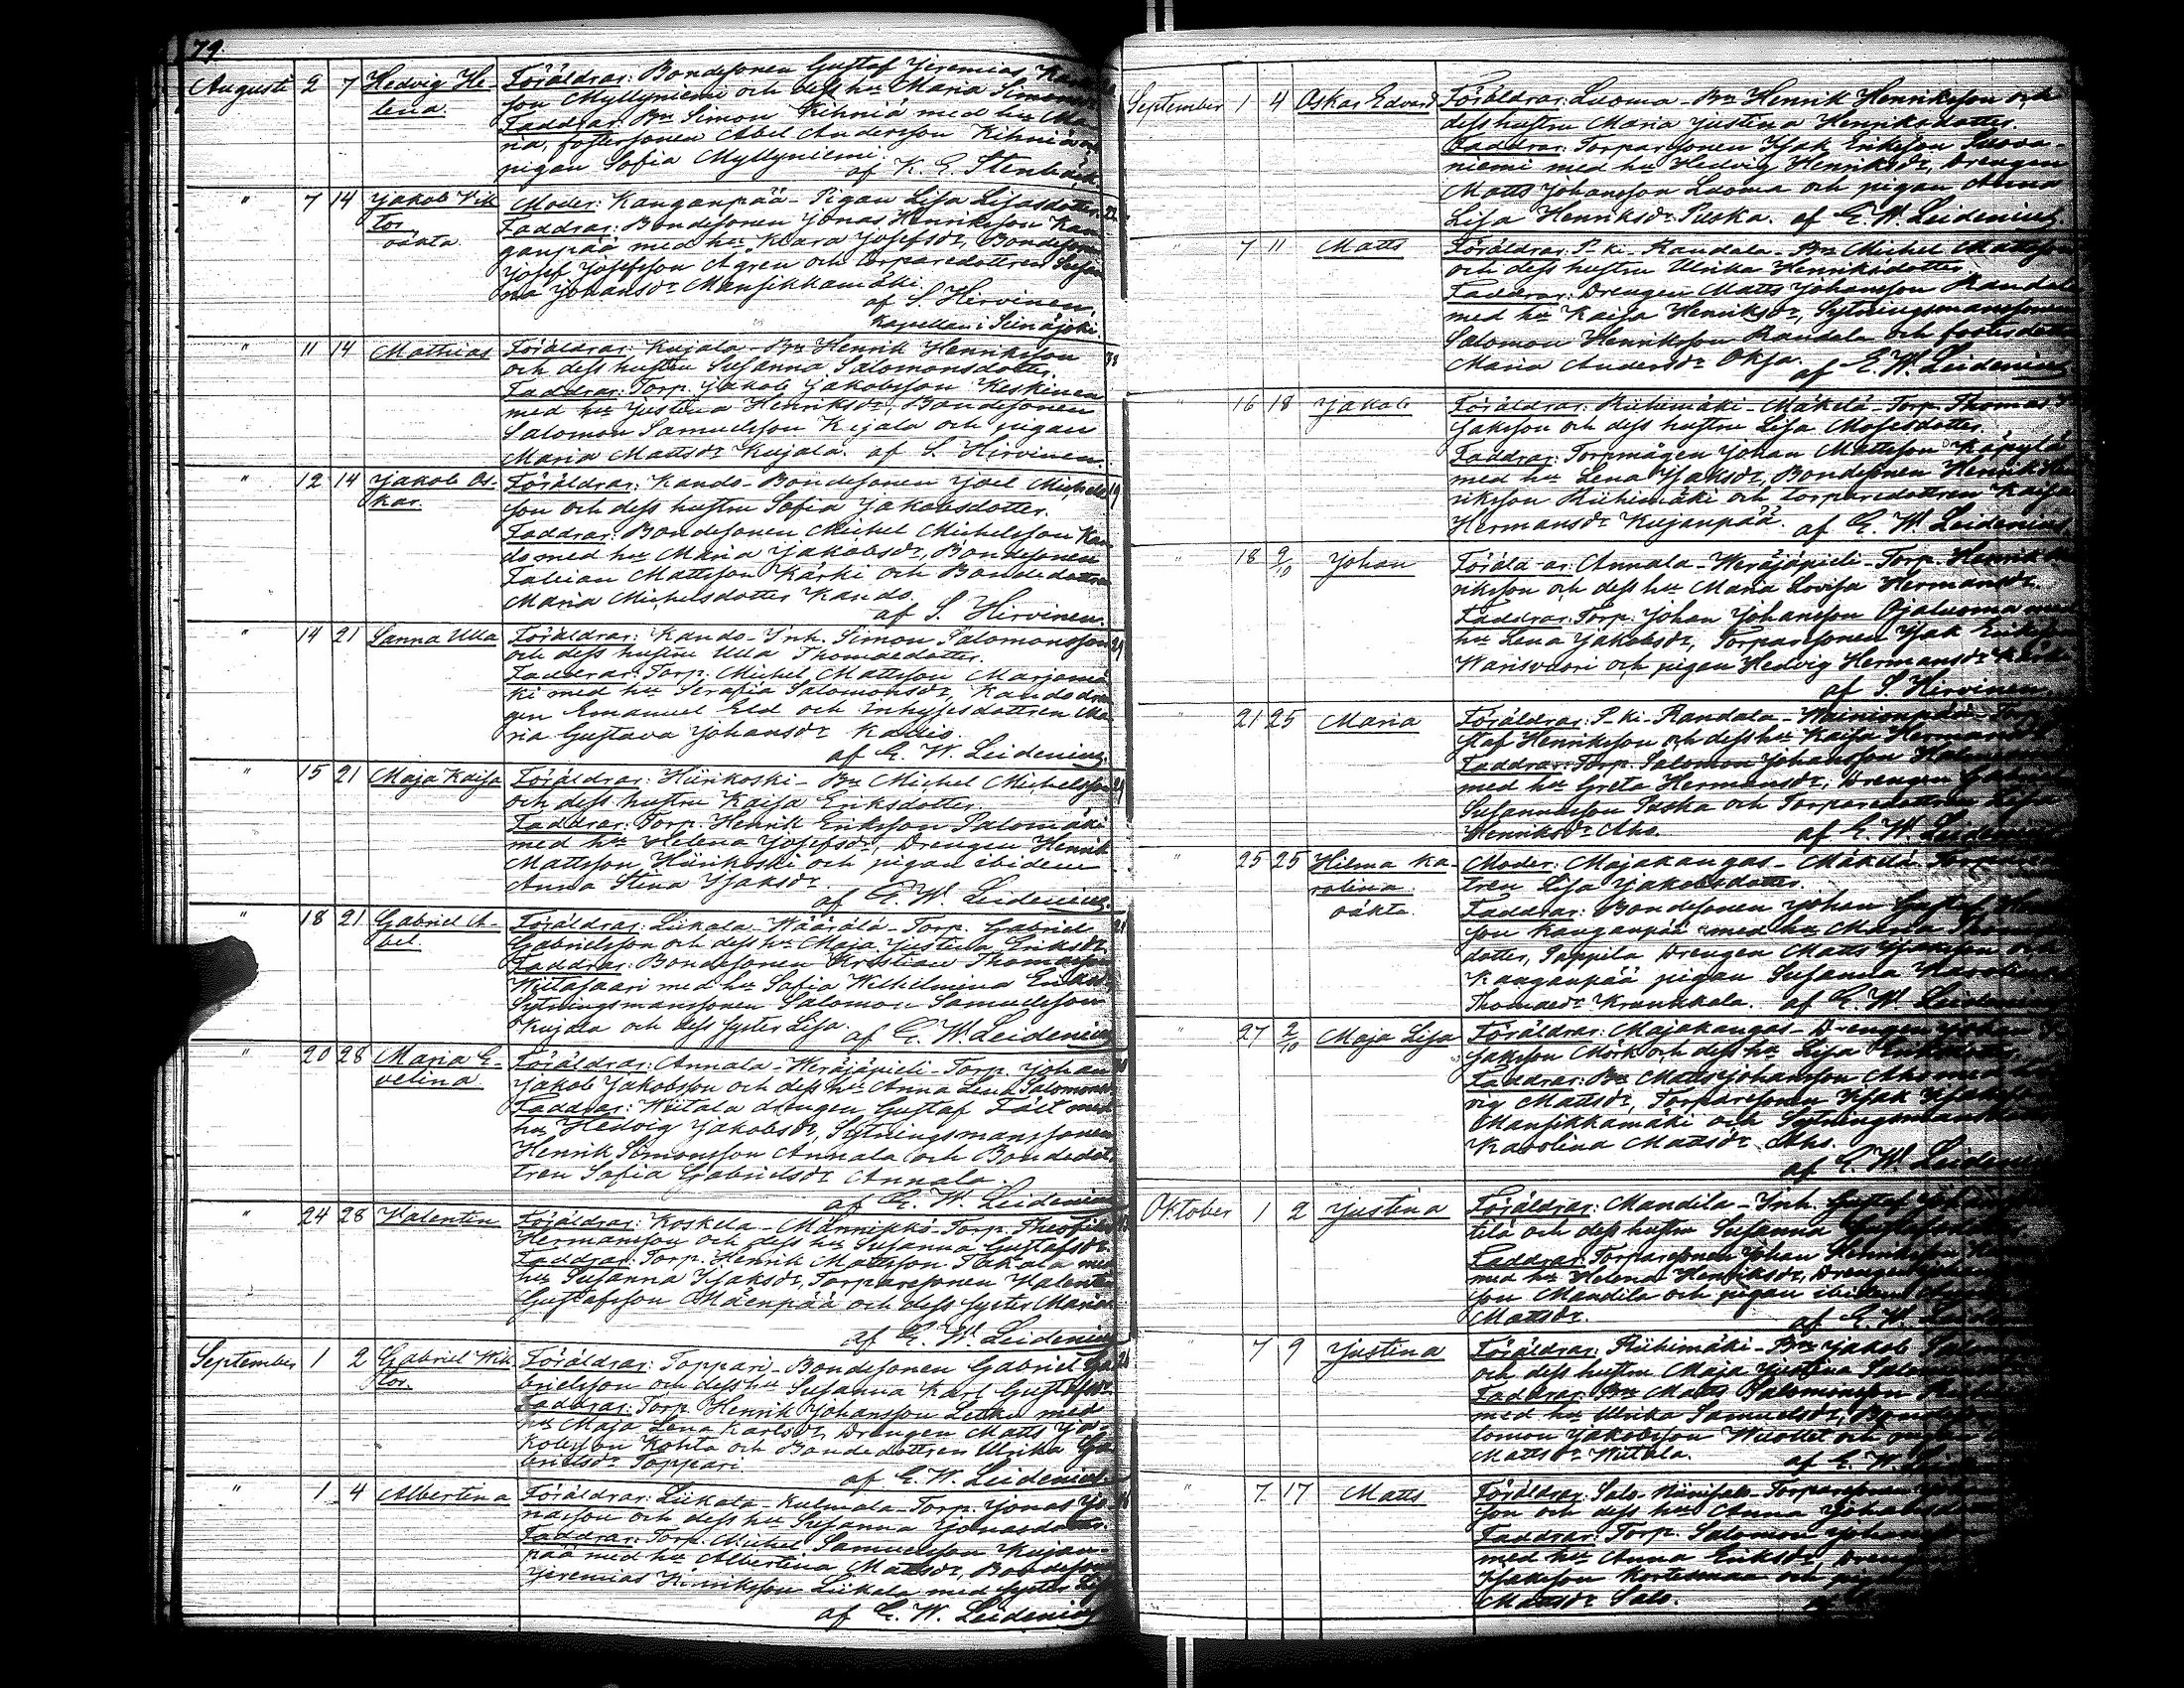 79.
Augusti 2 7 Hedvig He-
lena.
Föräldrar: Bondesonen Gustaf Jeremias
son Myllyniemi och dess hu Maria Simonsdr
Faddrar: Bn Simon Kihniä med hu Ma-
ria, fostersonen Abel Andersson Kihniä och
pigan Sofia Myllyniemi.
af K. E. Stenbäck.
" 7 14 Jakob Vik
tor
oäkta.
Moder: Kanganpää - Pigan Lisa Lisasdotter
Faddrar: Bondesonen Jonas Henriksson Kan
ganpää med hu Klara Josefsdr, Bondesonen
Josef Josefsson Ågren och torparedottren Susan
na Johansdr Mansikkamäki.
af S. Hirvinen,
Kapellan i Seinäjoki.
" 11 14 Mathias
Föräldrar: Kujala - Bn Henrik Henriksson
och dess hustru Susanna Salomonsdotter.
Faddrar: Torp. Jakob Jakobsson Keskinen
med hu Justina Henriksdr, Bondesonen
Salomon Samuelsson Kujala och pigan
Maria Mattsdr Kujala. af S. Hirvinen.
" 12 14 Jakob Os-
kar.
Föräldrar: Kando - Bondesonen Joel Michels
son och dess hustru Sofia Jakobsdotter.
Faddrar: Bondesonen Michel Michelsson Kan
do med hu Maria Jakobsdr, Bondesonen
Fabian Mattsson Kärki och Bondedottren
Maria Michelsdotter Kando.
af S. Hirvinen.
" 14 21 Sanna Ulla
Föräldrar: Kando - Inh. Simon Salomonsson
och dess hustru Ulla Thomasdotter.
Faddrar: Torp. Michel Mattsson Marjamä
ki med hu Serafia Salomonsdr, Kando dren
gen Emanuel Eld och inhysesdottren Ma-
ria Gustava Johansdr Kallio.
af E. W. Leidenius.
" 15 21 Maja Kaisa
Föräldrar: Hiirikoski - Bn Michel Michelsson
och dess hustru Kaisa Eriksdotter.
Faddrar: Torp. Henrik Eriksson Salomäki
med hu Helena Josefsdr, Drengen Henrik
Mattsson Hiirikoski och pigan ibidem
Anna Stina Isaksdr.
af E. W. Leidenius.
" 18 21 Gabriel A-
bel.
Föräldrar: Liikala - Wäärälä - Torp. Gabriel
Gabrielsson och dess hu Maja Justina Eriksdr
Faddrar: Bondesonen Kristian Thomasson
Wiitasaari med hu Sofia Wilhelmina Eriksdr
Sytningsmanssonen Salomon Samuelsson
Kujala och dess syster Lisa.
af E. W. Leidenius
" 20 28 Maria E-
velina.
Föräldrar: Annala - Weräjäpieli - Torp. Johan
Jakob Jakobsson och dess hu Anna Lena Salomonsdr
Faddrar: Wiitala drengen Gustaf Fält med
hu Hedvig Jakobsdr, Sytningsmanssonen
Henrik Simonsson Annala och Bondedot
tren Sofia Gabrielsdr Annala.
af E. W. Leidenius
" 24 28 Valentin
Föräldrar: Koskela - Männikkö - Torp. Theofilus
Hermansson och dess hu Susanna Gustafsdr.
Faddrar: Torp. Henrik Mattsson Takala med
hu Susanna Isaksdr, Torparesonen Valentin
Gustafsson Mäenpää och dess syster Maria
af E. W. Leidenius
September 1 2 Gabriel Wik
tor.
Föräldrar: Toppari - Bondesonen Gabriel Ga
brielsson och dess hu Susanna Karl Gustafsdr
Faddrar: Torp. Henrik Johansson Letku med
hu Maja Lena Karlsdr, Drengen Matts Ja-
kobsson Kohta och Bondedottren Ulrika Ga
brielsdr Toppari.
af E. W. Leidenius
" 1 4 Albertina
Föräldrar: Liikala - Kulmala - Torp. Jonas Jo
nasson och dess hu Susanna Jonasdotter.
Faddrar: Torp. Michel Samuelsson Kujan-
pää med hu Albertina Mattsdr, Bondeson
Jeremias Henriksson Liikala med syster Lisa
af E. W. Leidenius
September 1 4 Oskar Edvard
Föräldrar: Luoma - Bn Henrik Henriksson och
dess hustru Maria Justina Henriksdotter.
Faddrar: Torparesonen Isak Eriksson Luoma-
niemi med hu Hedvig Henriksdr, Drengen
Matts Johansson Luoma och pigan Anna
Lisa Henriksdr Puska. af E. W. Leidenius
" 7 11 Matts
Föräldrar: P. ki - Randala - Bn Michel Mattsson
och dess hustru Ulrika Henriksdotter.
Faddrar: Drengen Matts Johansson Randala
med hu Kaisa Henriksdr, Sytningsmanssonen
Salomon Henriksson Randala och fosterdottren
Maria Andersdr Oksa. af E. W. Leidenius
" 16 18 Jakob
Föräldrar: Riihimäki - Mäkelä - Torp. Thomas I
saksson och dess hustru Lisa Mosesdotter.
Faddrar: Torpmågen Johan Mattsson Käpylä
med hu Lena Isaksdr, Bondesonen Henrik Hen
riksson Riihimäki och torparedottren Kaisa
Hermansdr Kujanpää. af E. W. Leidenius.
" 18 9/10 Johan
Föräldrar: Annala - Weräjäpieli - Torp. Henrik Hen
riksson och dess hu Maria Lovisa Hermansdr.
Faddrar: Torp. Johan Johansson Ojaluoma med
hu Lena Jakobsdr, Torparesonen Isak Eriksson
Warisvuori och pigan Hedvig Hermansdr
af S. Hirvinen.
" 21 25 Maria
Föräldrar: P. ki - Randala - Wainionpää - Torp. Gu
staf Henriksson och dess hu Kaisa Hermansdr
Faddrar: Torp. Salomon Johansson
med hu Greta Hermansdr, Drengen Gabriel
Susannasson Paska och Torparedottren Lisa
Henriksdr Aho. af E. W. Leidenius
" 25 25 Hilma Ka
rolina.
oäkta.
Moder: Majakangas - Mäkelä Torparedot
tren Lisa Jakobsdotter.
Faddrar: Bondesonen Johan Gustaf
son Kanganpää med hu Maria Thomas
dotter, Pappila Drengen Matts Isaksson
Kanganpää pigan Susanna Karolina
Thomasdr Krannkala. af E. W. Leidenius
" 27 2/10 Maja Lisa
Föräldrar: Majakangas - Drengen Johan I
saksson Mörk och dess hu Lisa Eriksdotter.
Faddrar: Bn Matts Johansson Aho med hu Hed
vig Mattsdr, Torparesonen Isak Isaksson
Mansikkamäki och Sytningsmansdottren
Karolina Mattsdr Aho.
af E. W. Leidenius
Oktober 1 2 Justina
Föräldrar: Mandila - Inh. Gustaf
tila och dess hustru Susanna Gustafsdotter
Faddrar: Torparesonen Johan Henriksson
med hu Helena Henriksdr, Drengen
son Mandila och pigan ibidem
Mattsdr. af E. W. Leide
" 7 9 Justina
Föräldrar: Riihimäki - Bn Jakob Salomo
och dess hustru Maja Justina Salomo
Faddrar: Bn Matts Salomonsson
med hu Ulrika Samuelsdr, Bondeson
lomon Jakobsson och pigan
Mattsdr Wiitala. af E. W. Leide
" 7 17 Matts
Föräldrar: Salo - Torparesonen
son och dess hu Anna Johansdr
Faddrar: Torp. Salomon Johans
med hu Anna Eriksdr, Dreng
Isaksson Kortesmaa och pig
Mattsdr Salo. af